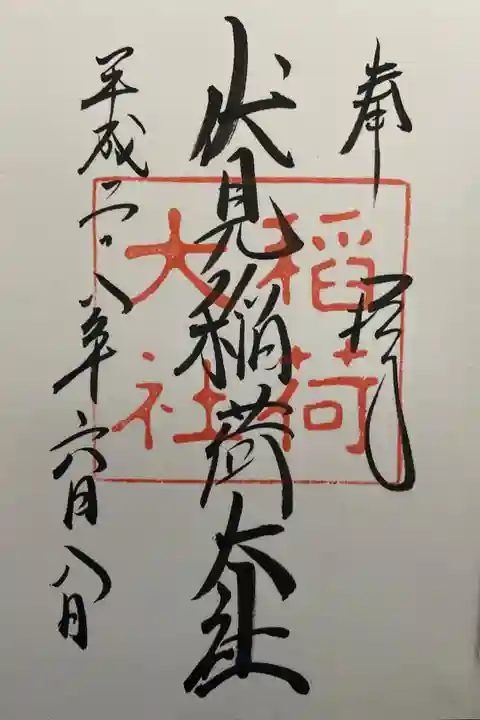 奉拝
伏見稲荷大社
稲荷
大社
平成二八年六月八日